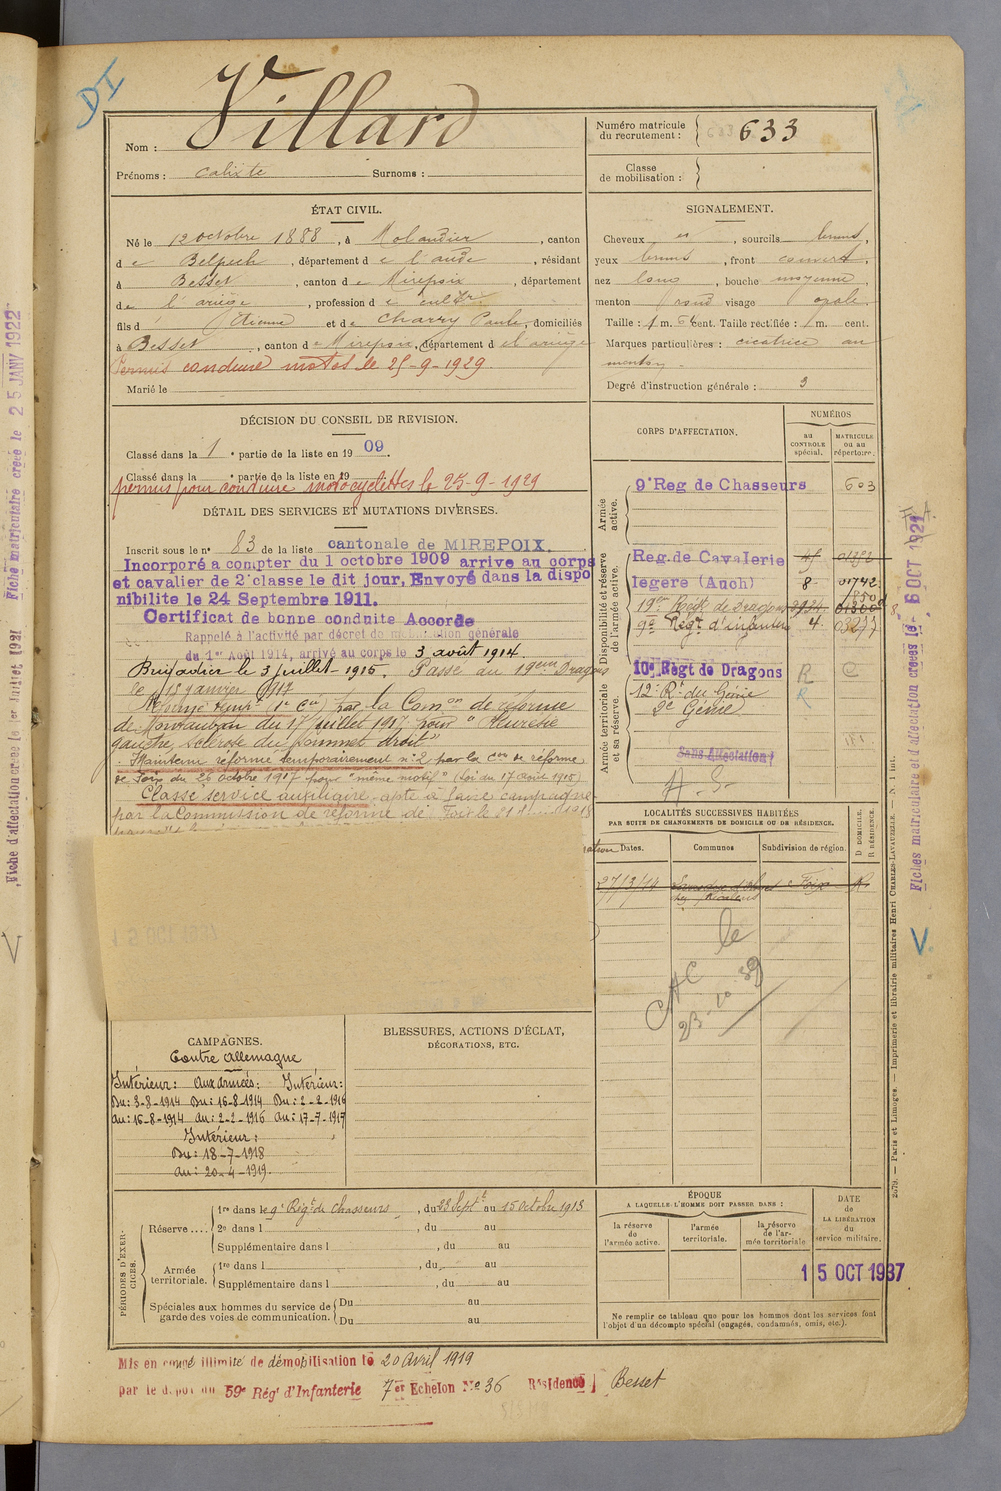 DI
Nom : Villard
Prénoms : calixte Surnoms :
Numéro matricule du recrutement : 633
Classe de mobilisation :
ÉTAT CIVIL.
Né le 12 octobre 1888, à Molandier, canton
de Belpech, département de l'aude, résidant
à Besset, canton de Mirepoix, département
de l'ariège, profession de cultr
fils d' Etienne et de Charry Paule, domiciliés
à Besset, canton de Mirepoix, département de l'ariège
Permis conduire motos le 25-9-1929.
Marié le
SIGNALEMENT.
Cheveux et, sourcils bruns,
yeux bruns, front couvert,
nez long, bouche moyenne,
menton rond visage ovale.
Taille : 1 m. 64 cent. Taille rectifiée : 1 m. cent.
Marques particulières : cicatrice au
menton.
Degré d'instruction générale : 3
DÉCISION DU CONSEIL DE REVISION.
Classé dans la 1e partie de la liste en 1909.
Classé dans la e partie de la liste en 19
permis pour conduire motocyclettes le 25-9-1929
DÉTAIL DES SERVICES ET MUTATIONS DIVERSES.
Inscrit sous le n° 83 de la liste cantonale de MIREPOIX.
Incorporé a compter du 1 octobre 1909 arrive au corps
et cavalier de 2e classe le dit jour, Envoyé dans la dispo
nibilite le 24 Septembre 1911.
Certificat de bonne conduite Accorde
Rappelé à l'activité par décret de mobilisation générale
du 1er Août 1914, arrivé au corps le 3 août 1914.
Brigadier le 3 juillet 1915. Passé au 19eme Dragons
le 15 janvier 1917
Réformé temp. (1e Con) par la Comon de réforme
de Montauban du 17 juillet 1917 pour "Pleurésie
gauche, sclérose du sommet droit"
Maintenu réformé temporairement n° 2 par la Con de réforme
de Foix du 26 octobre 1917 pour "même motif" (loi du 17 août 1915)
Classé service auxiliaire, apte à faire campagne
par la Commission de réforme de Foix le
CORPS D'AFFECTATION.
NUMÉROS
au CONTROLE spécial.
MATRICULE ou au répertoire.
Armée active.
9e Reg de Chasseurs 603
Disponibilité et réserve de l'armée active.
Reg. de Cavalerie
légere (Auch) 8 01742
19er Régt de Dragons
9e Régt d'infanterie 4 03277
Armée territoriale et sa réserve.
10e Règt de Dragons R C
12e Rt du Génie R
2e Génie
Sans Affectation
A.S.
LOCALITÉS SUCCESSIVES HABITÉES
PAR SUITE DE CHANGEMENTS DE DOMICILE OU DE RÉSIDENCE.
Dates. Communes Subdivision de région. D DOMICILE. R RÉSIDENCE
27/3/14 Foix R
CAC le
23-10-39
15 OCT 1937
CAMPAGNES.
Contre Allemagne
Intérieur: Aux armées: Intérieur:
Du: 3-8-1914 Du: 16-8-1914 Du: 2-2-1916
au: 16-8-1914 au: 2-2-1916 au: 17-7-1917
Intérieur:
Du: 18-7-1918
au: 20-4-1919.
BLESSURES, ACTIONS D'ÉCLAT,
DÉCORATIONS, ETC.
PÉRIODES D'EXERCICES.
Réserve.... 1re dans le 9e Régt de Chasseurs, du 23 Septe au 15 octobre 1913
2e dans l , du au
Supplémentaire dans l , du au
Armée territoriale. 1re dans l , du au
Supplémentaire dans l , du au
Spéciales aux hommes du service de garde des voies de communication. Du au
Du au
ÉPOQUE
A LAQUELLE L'HOMME DOIT PASSER DANS :
la réserve de l'armée active.
l'armée territoriale.
la réserve de l'armée territoriale
DATE DE LA LIBÉRATION du service militaire.
15 OCT 1937
Ne remplir ce tableau que pour les hommes dont les services font
l'objet d'un décompte spécial (engagés, condamnés, omis, etc.).
Mis en congé illimité de démobilisation le 20 avril 1919
par le dépot du 59e Rég' d'Infanterie 7er Echelon No 36 Résidence Besset
Fiche d'affectation créée le 1er Juillet 1921
Fiche matriculaire créée le 25 JANV 1922
Fiches matriculaire et d'affectation créées le 6 OCT 1921
V
V.
2679. — Paris et Limoges. — Imprimerie et librairie militaires Henri CHARLES-LAVAUZELLE. — N. 1 int.